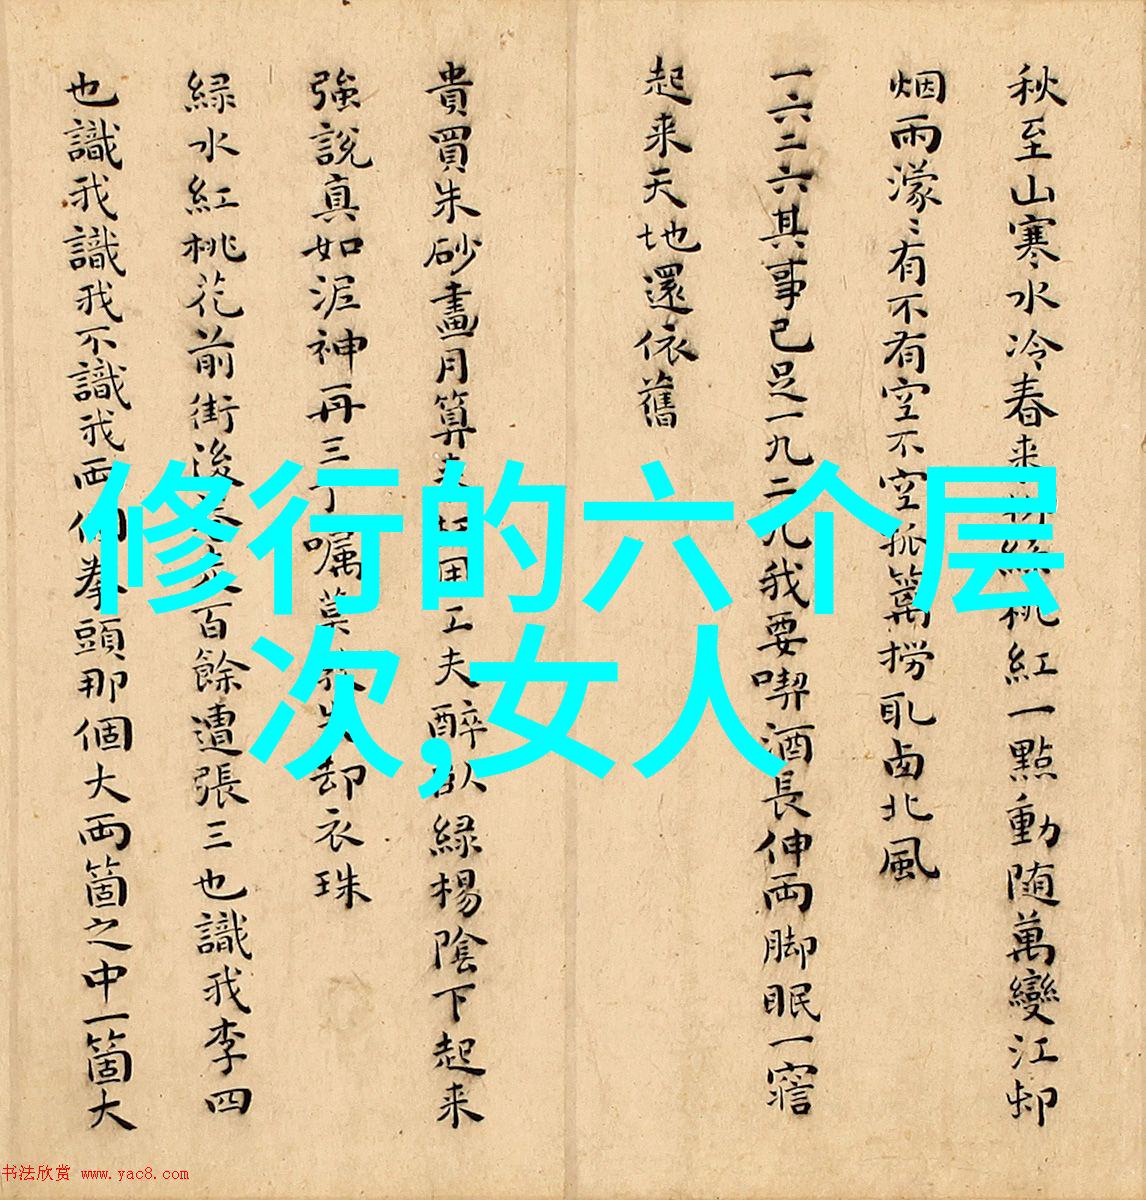 秋至山寒水冷春来柳絲桃紅一點動随萬變江邨
烟雨濛〻有不有空不空孤篱撈取西北風
一六二六其事已足一九二九我要喫酒長伸兩脚眠一寤
起来天地還依舊
貴買朱砂畫月算来工夫醉臥緑楊陰下起来
強說真如泥神再三丁嘱莫衣珠
緑水紅桃花前街後百餘遭張三也識我李四
也識我識我不識我兩個拳頭那個大兩箇之中一箇大
修行的六个层
次,女人
书法欣赏 www.yac8.com